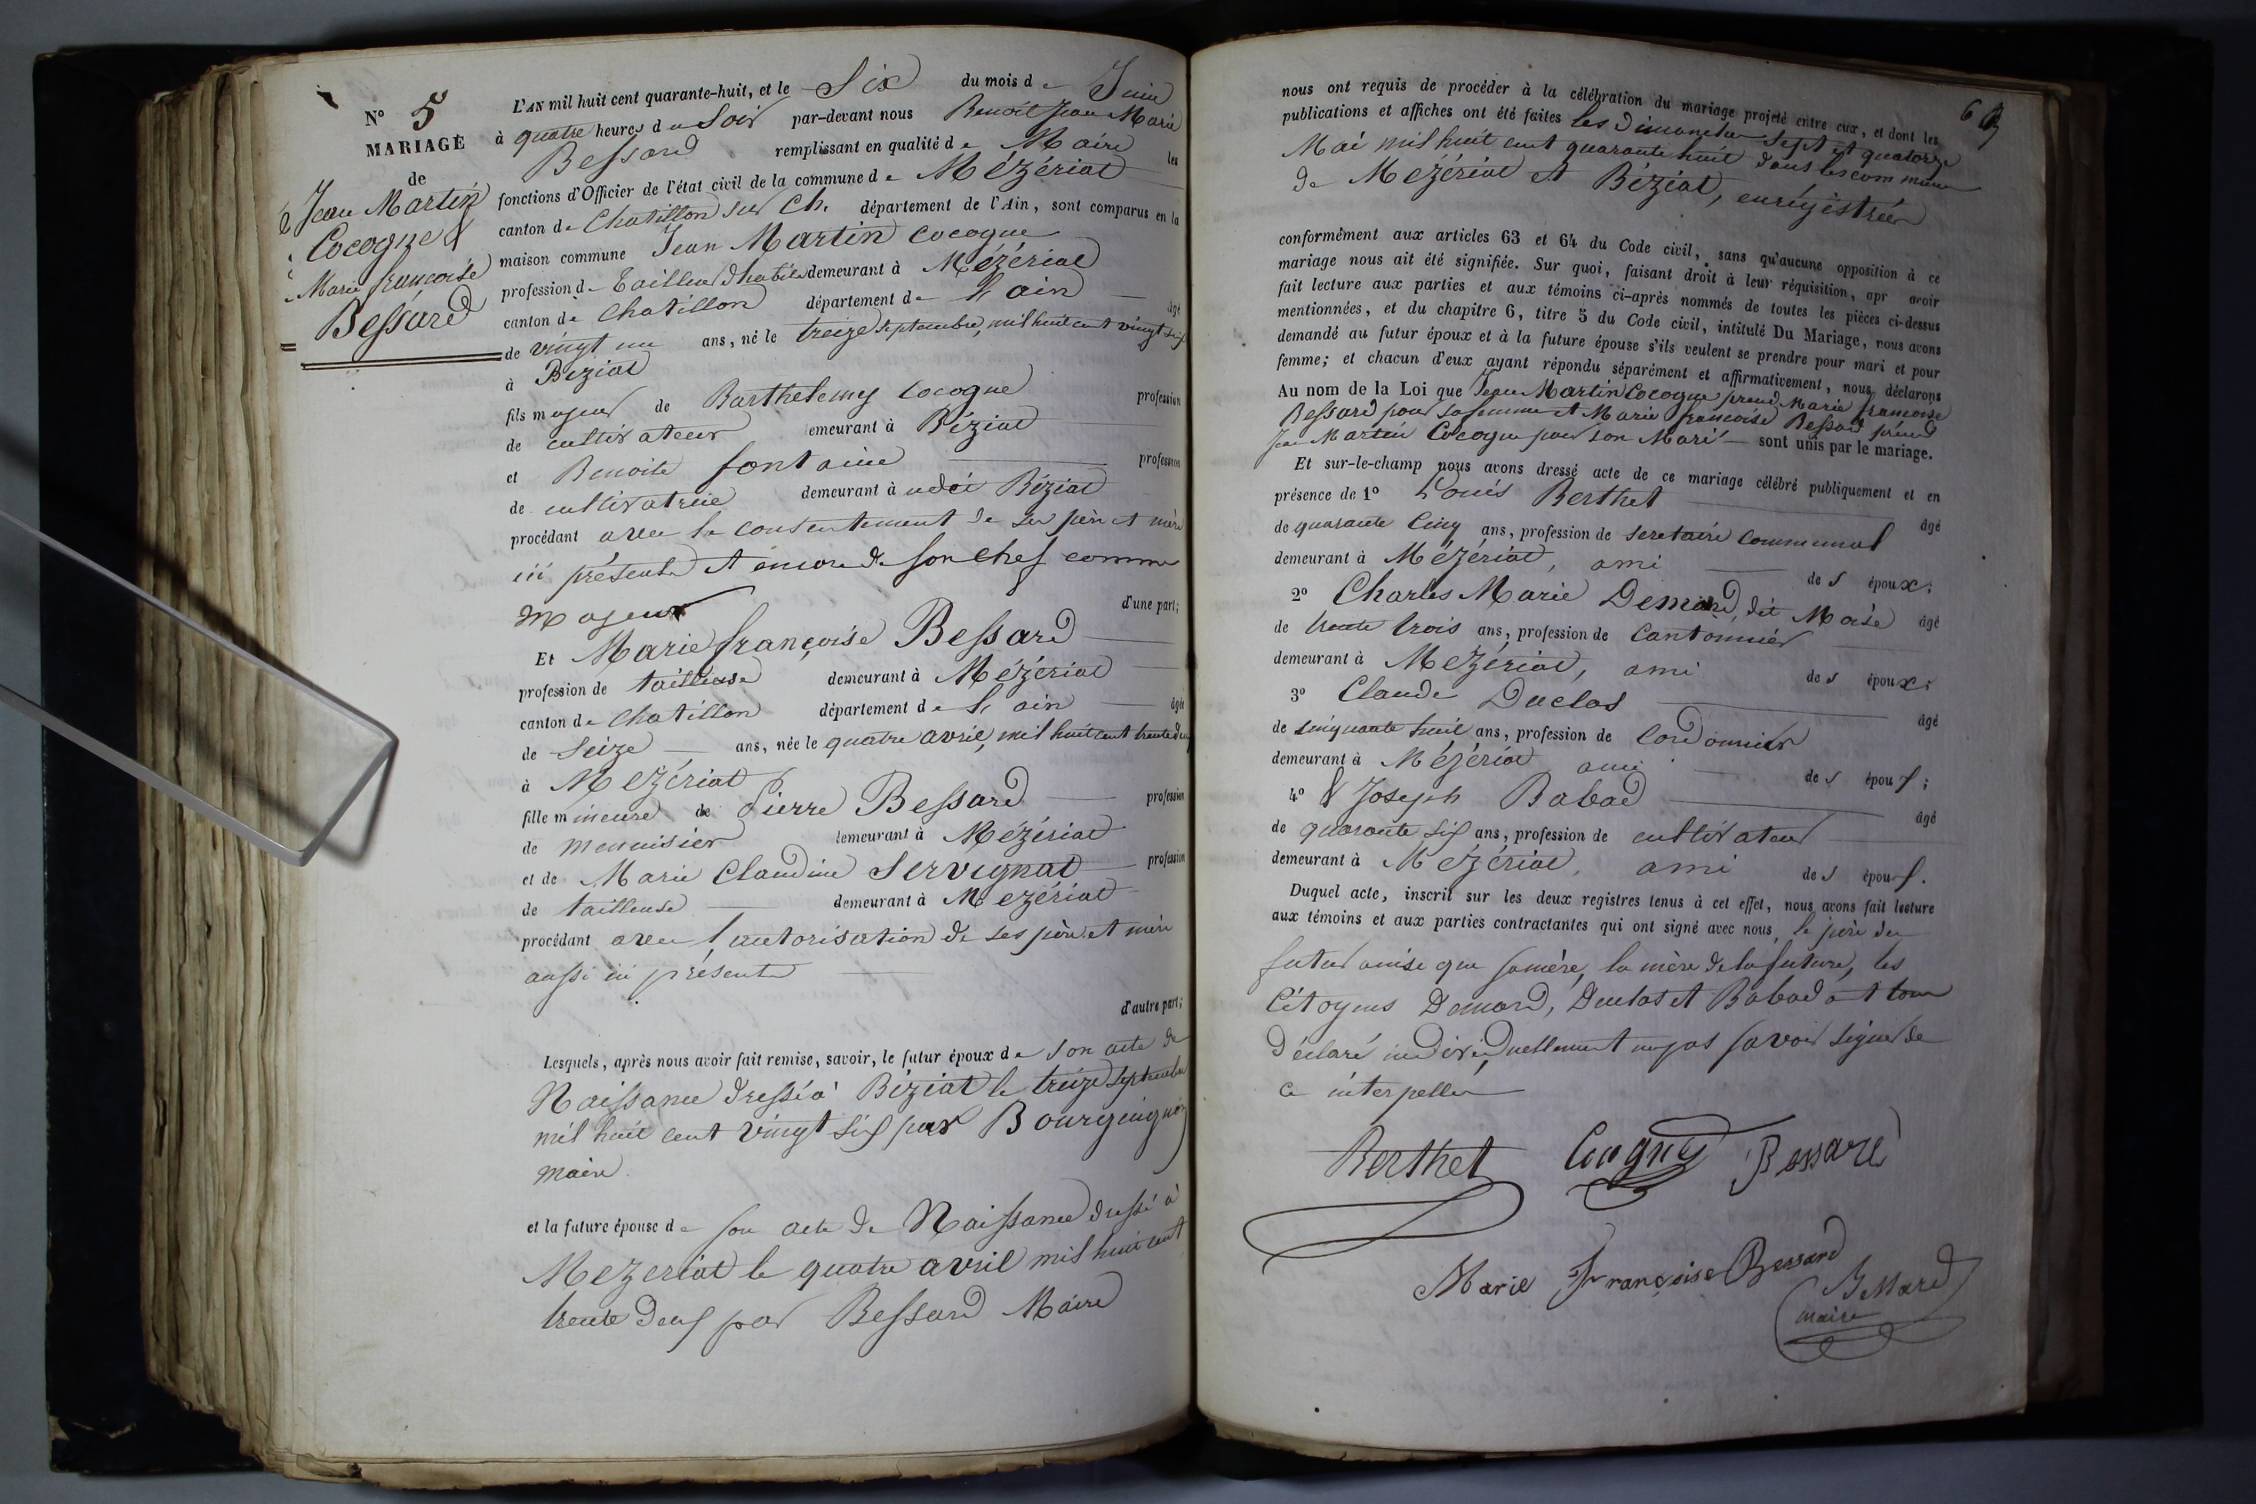 N° 5
MARIAGE
de
Jean Martin
Cocogne &
Marie françoise
Bessard
L'AN mil huit cent quarante-huit, et le Six du mois de Juin
à quatre heures du Soir par-devant nous Benoit Jean Marie
Bessard remplissant en qualité de Maire les
fonctions d'Officier de l'état civil de la commune de Mézériat
canton de Chatillon sur Ch. département de l'Ain, sont comparus en la
maison commune Jean Martin Cocogne
profession de Tailleur d'habits demeurant à Mézériat
canton de Chatillon département de L'ain âgé
de vingt un ans, né le treize septembre, mil huit cent vingt six
à Béziat
fils majeur de Barthelemy Cocogne profession
de cultivateur emeurant à Béziat
et Benoite fontaine profession
de cultivatrice demeurant à udit Béziat
procédant avec le consentement de ses père et mère
ici présents et encore de son chef comme
Majeur d'une part;
Et Marie françoise Bessard
profession de tailleuse demeurant à Mézériat
canton de Chatillon département de L'ain âgée
de Seize ans, née le quatre avril, mil huit cent trente deux
à Mézériat
fille mineure de Pierre Bessard profession
de menuisier demeurant à Mézériat
et de Marie Claudine Servignat profession
de tailleuse demeurant à Mézériat
procédant avec l'autorisation de ses père et mère
aussi ici présents
d'autre part;
Lesquels, après nous avoir fait remise, savoir, le futur époux de son acte de
Naissance dressé à Béziat le treize septembre
mil huit cent vingt six par Bourguignon
maire.
et la future épouse de son acte de Naissance dressé à
Mezeriat le quatre avril mil huit cent
trente deux par Bessard Maire
6
nous ont requis de procéder à la célébration du mariage projeté entre eux, et dont les
publications et affiches ont été faites les dimanches sept et quatorze
Mai mil huit cent quarante huit dans les communes
de Mézériat et Béziat, enrégistrées
conformément aux articles 63 et 64 du Code civil, sans qu'aucune opposition à ce
mariage nous ait été signifiée. Sur quoi, faisant droit à leur réquisition, apr avoir
fait lecture aux parties et aux témoins ci-après nommés de toutes les pièces ci-dessus
mentionnées, et du chapitre 6, titre 5 du Code civil, intitulé Du Mariage, nous avons
demandé au futur époux et à la future épouse s'ils veulent se prendre pour mari et pour
femme; et chacun d'eux ayant répondu séparément et affirmativement, nous déclarons
Au nom de la Loi que Jean Martin Cocogne prend Marie françoise
Bessard pour sa femme et Marie françoise Bessard prend
Jean Martin Cocogne pour son Mari sont unis par le mariage.
Et sur-le-champ nous avons dressé acte de ce mariage célébré publiquement et en
présence de 1° Louis Berthet âgé
de quarante Cinq ans, profession de secretaire Communal
demeurant à Mézériat, ami des époux;
2° Charles Marie Demard, dit Moise âgé
de trente trois ans, profession de Cantonnier
demeurant à Mézériat, ami des époux;
3° Claude Duclos âgé
de cinquante huit ans, profession de Cordonnier
demeurant à Mézériat ami des époux;
4° & Joseph Babad âgé
de quarante six ans, profession de cultivateur
demeurant à Mézériat, ami des époux.
Duquel acte, inscrit sur les deux registres tenus à cet effet, nous avons fait lecture
aux témoins et aux parties contractantes qui ont signé avec nous, le père du
futur ainsi que sa mère, la mère de la future, les
Citoyens Demard, Duclos et Babad ont tous
déclaré individuellement ne pas savoir signer de
ce interpellés
Berthet Bessard
Marie Françoise Bessard
Bessard
maire